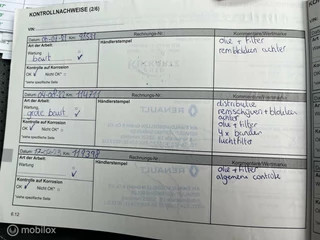 KONTROLLNACHWEISE (2/6)
VIN:
Datum: km:
Rechnungs-Nr.:
Kommentare/Vermerke
Art der Arbeit:
Händlerstempel
olie + filter
Wartung
remblokken achter
beurt
Kontrolle auf Korrosion
OK Nicht OK*
*siehe spezifische Seite
Datum: km: 114711
Rechnungs-Nr.:
Art der Arbeit:
Händlerstempel
distributie
Wartung
remschijven + blokken
grote beurt
achter
Kontrolle auf Korrosion
olie + filter
OK Nicht OK*
4x banden
*siehe spezifische Seite
luchtfilter
RENAULT
Datum: km:
Rechnungs-Nr.:
Kommentare/Vermerke
Art der Arbeit:
Händlerstempel
olie + filter
Wartung
algemene controle
Kontrolle auf Korrosion
OK Nicht OK*
*siehe spezifische Seite
6.12
mobolix